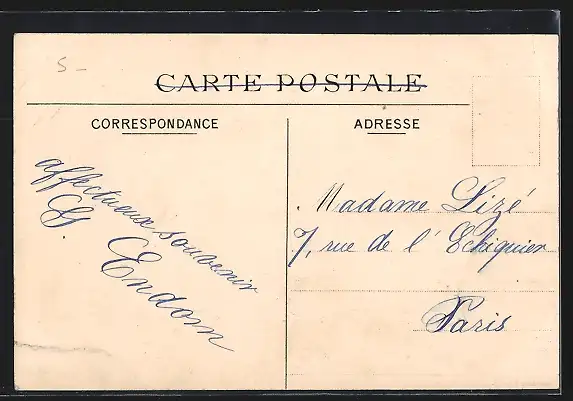 5-
CARTE POSTALE
CORRESPONDANCE
ADRESSE
affectueux souvenir
G. Endom
Madame Lizé
7, rue de l'Echiquier
Paris